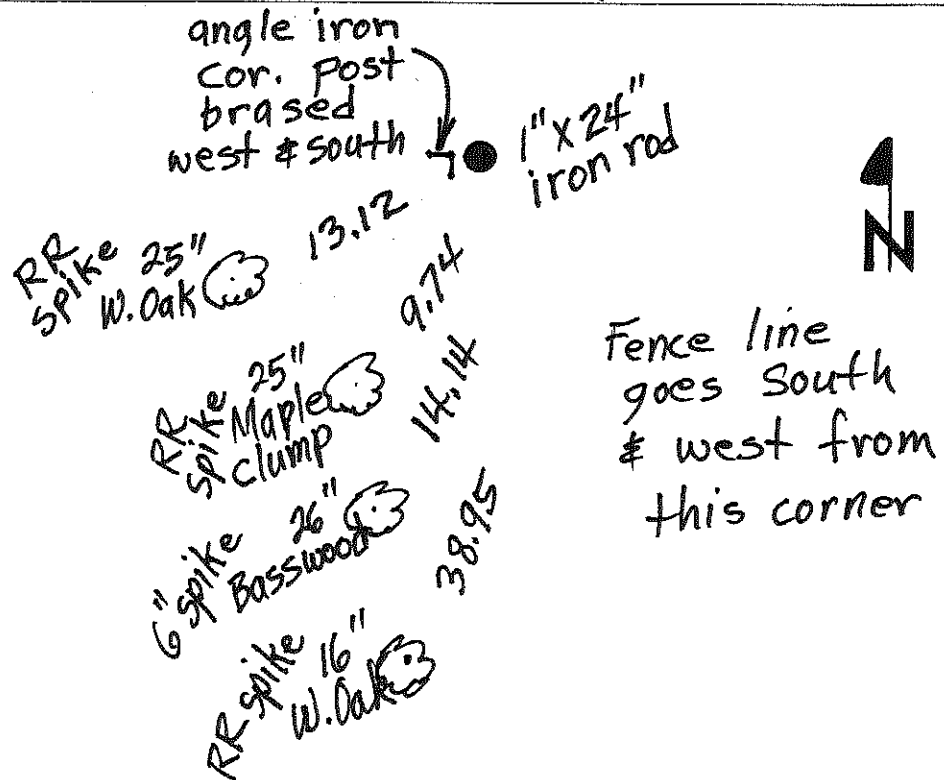 angle iron
cor. Post
brased
west & south
1" X 24"
iron rod
N
13.12
RR
spike 25"
W. Oak
9.74
RR
spike 25"
Maple
clump
14.14
6" spike 26"
Basswood
38.95
RR spike 16"
W. Oak
Fence line
goes South
& west from
this corner